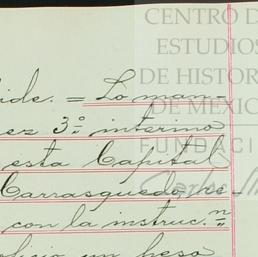 CENTRO D
ESTUDIOS
DE HISTOR
DE MÉXIC
FUNDACI
ide. = Lo man-
ez 3º interino
esta Capital
Carrasquedo, ve
con la instruc.n
un peso